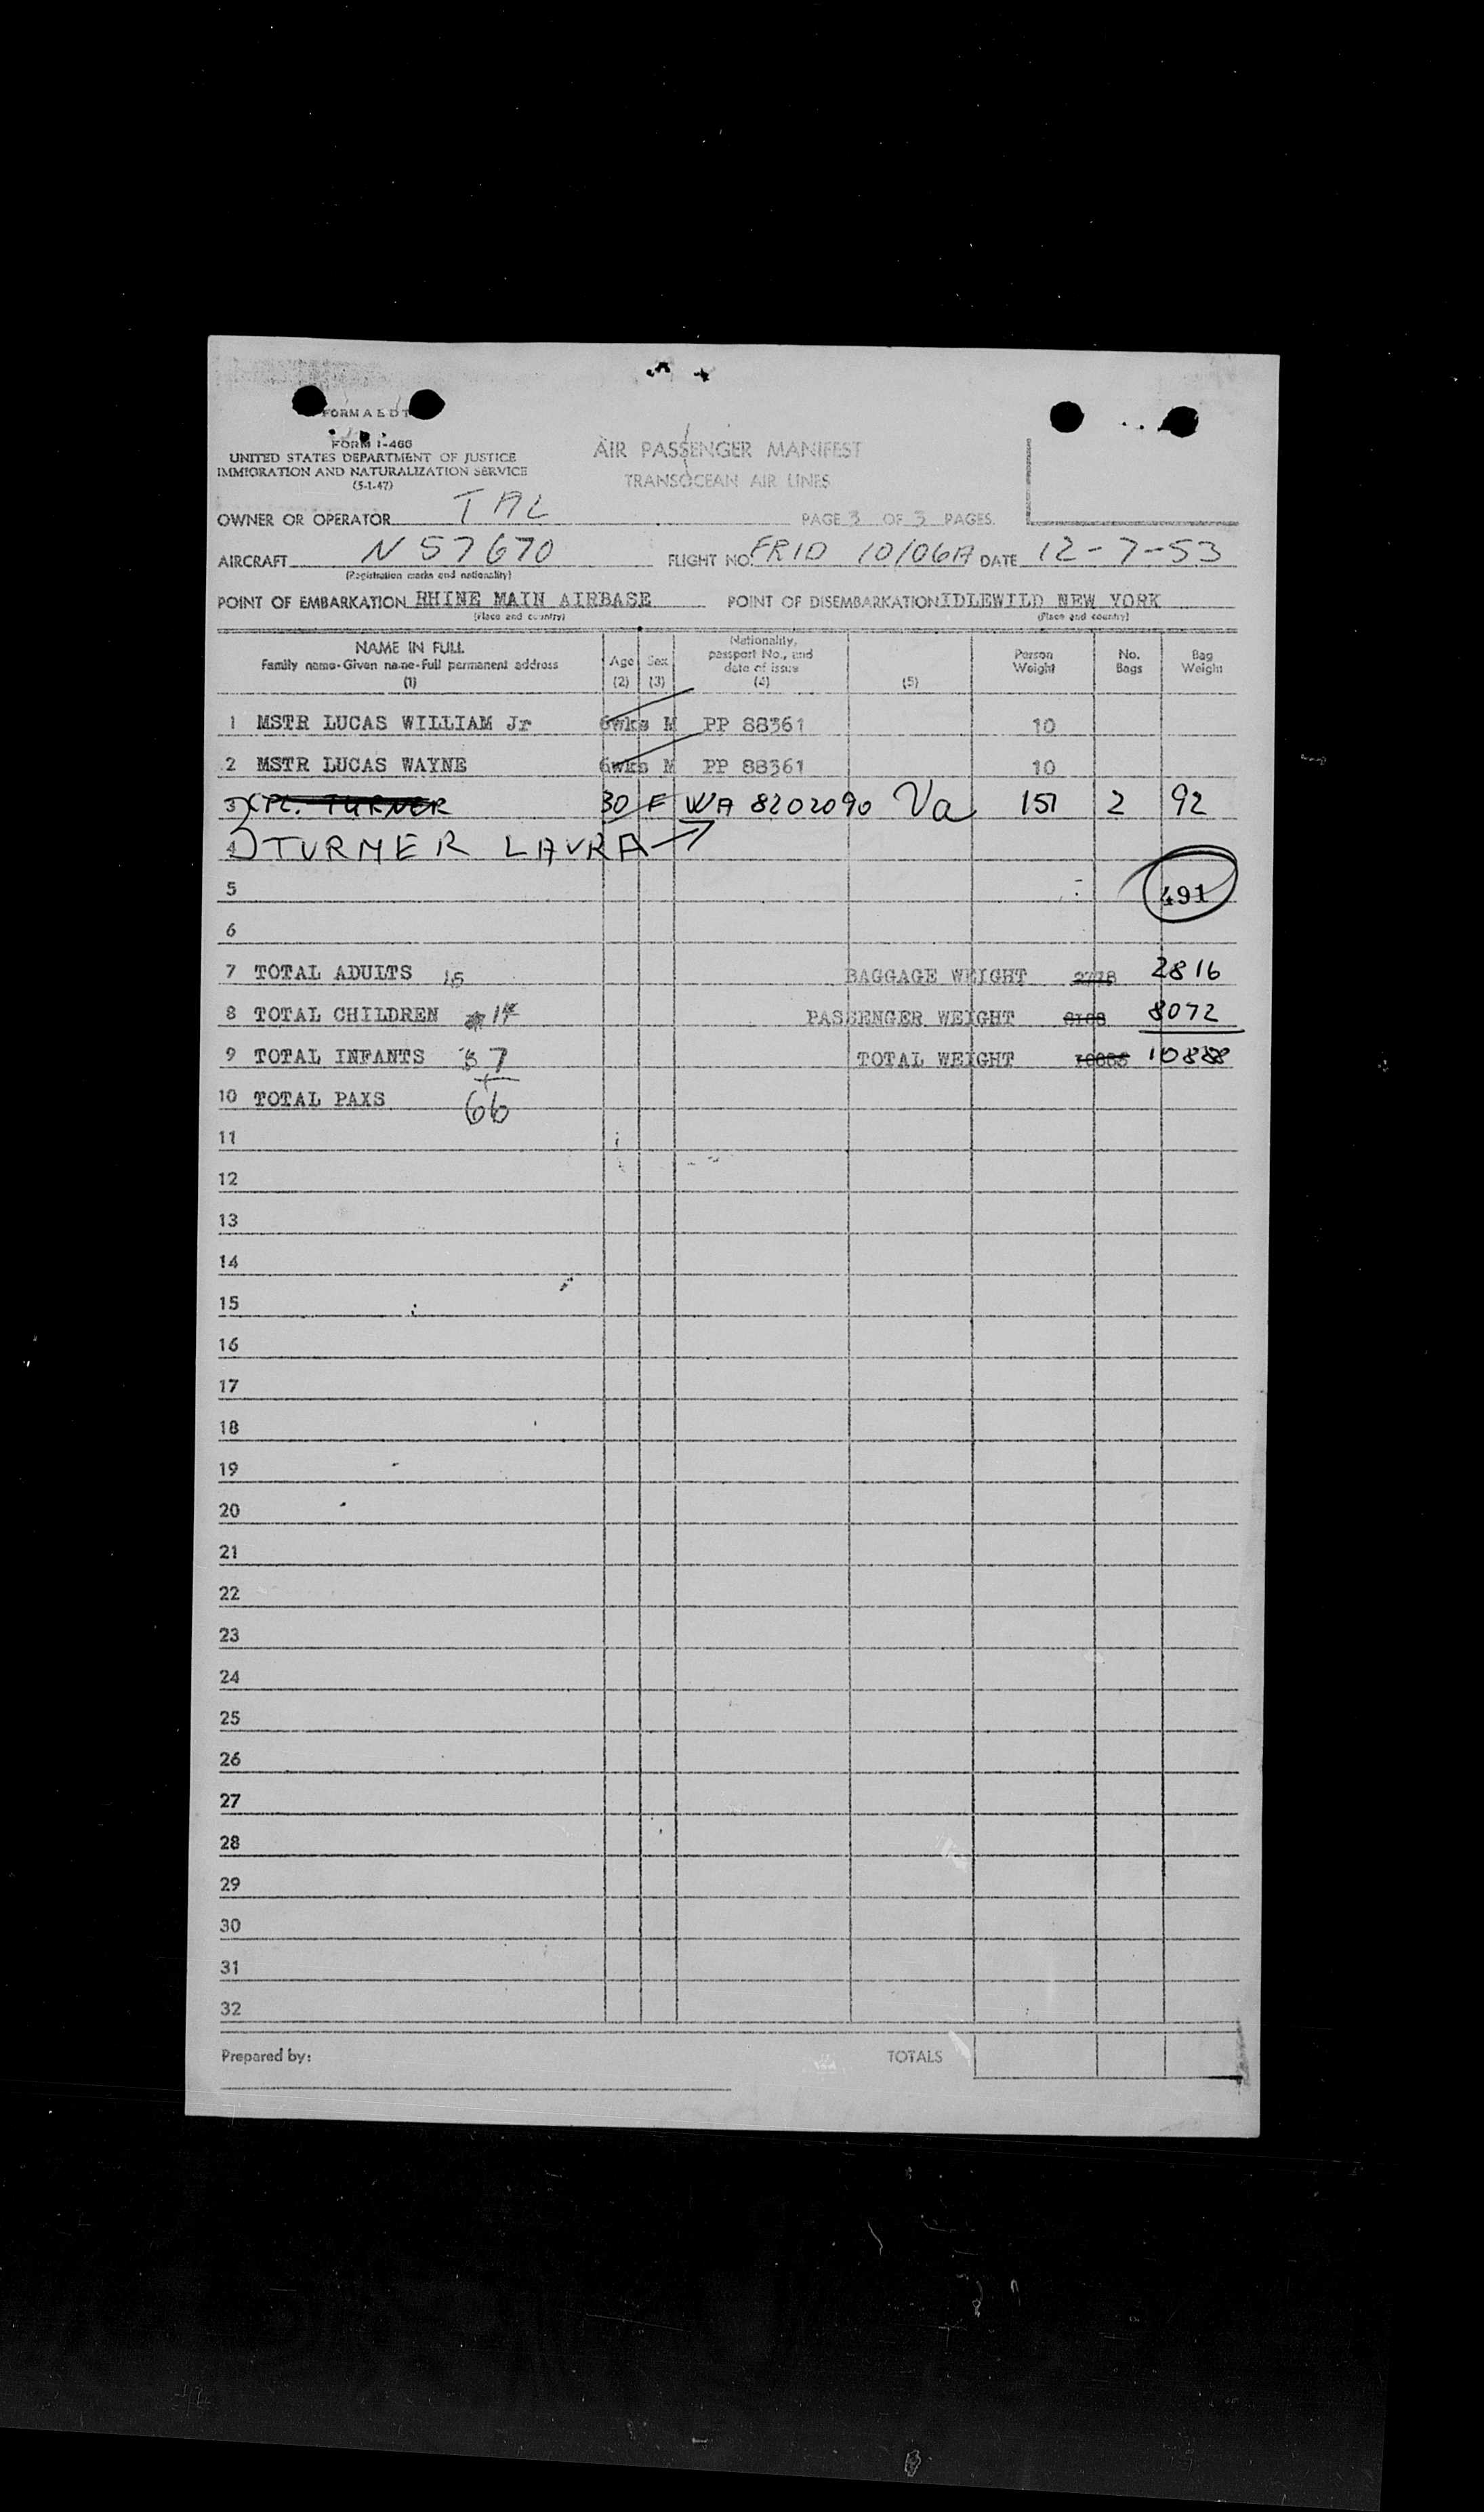 FORM A E D T
FORM I-466
UNITED STATES DEPARTMENT OF JUSTICE
IMMIGRATION AND NATURALIZATION SERVICE
(5-1-47)
AIR PASSENGER MANIFEST
TRANSOCEAN AIR LINES
OWNER OR OPERATOR TAL PAGE 3 OF 3 PAGES.
AIRCRAFT N 57670 FLIGHT NO. FRID 10/06A DATE 12-7-53
(Registration marks and nationality)
POINT OF EMBARKATION RHINE MAIN AIRBASE POINT OF DISEMBARKATION IDLEWILD NEW YORK
(Place and country) (Place and country)
NAME IN FULL
Family name-Given name-Full permanent address
(1)
Age
(2)
Sex
(3)
Nationality,
passport No., and
date of issue
(4)
(5)
Person
Weight
No.
Bags
Bag
Weight
1 MSTR LUCAS WILLIAM Jr 6wks M PP 88361 10
2 MSTR LUCAS WAYNE 6wks M PP 88361 10
3 CPL. TURNER 30 F WA 8202090 Va 151 2 92
4 TURMER LAURA
5 491
6
7 TOTAL ADULTS BAGGAGE WEIGHT 2778 2816
8 TOTAL CHILDREN 14 PASSENGER WEIGHT 8072
9 TOTAL INFANTS 7 TOTAL WEIGHT 10888
10 TOTAL PAXS 66
11
12
13
14
15
16
17
18
19
20
21
22
23
24
25
26
27
28
29
30
31
32
Prepared by: TOTALS